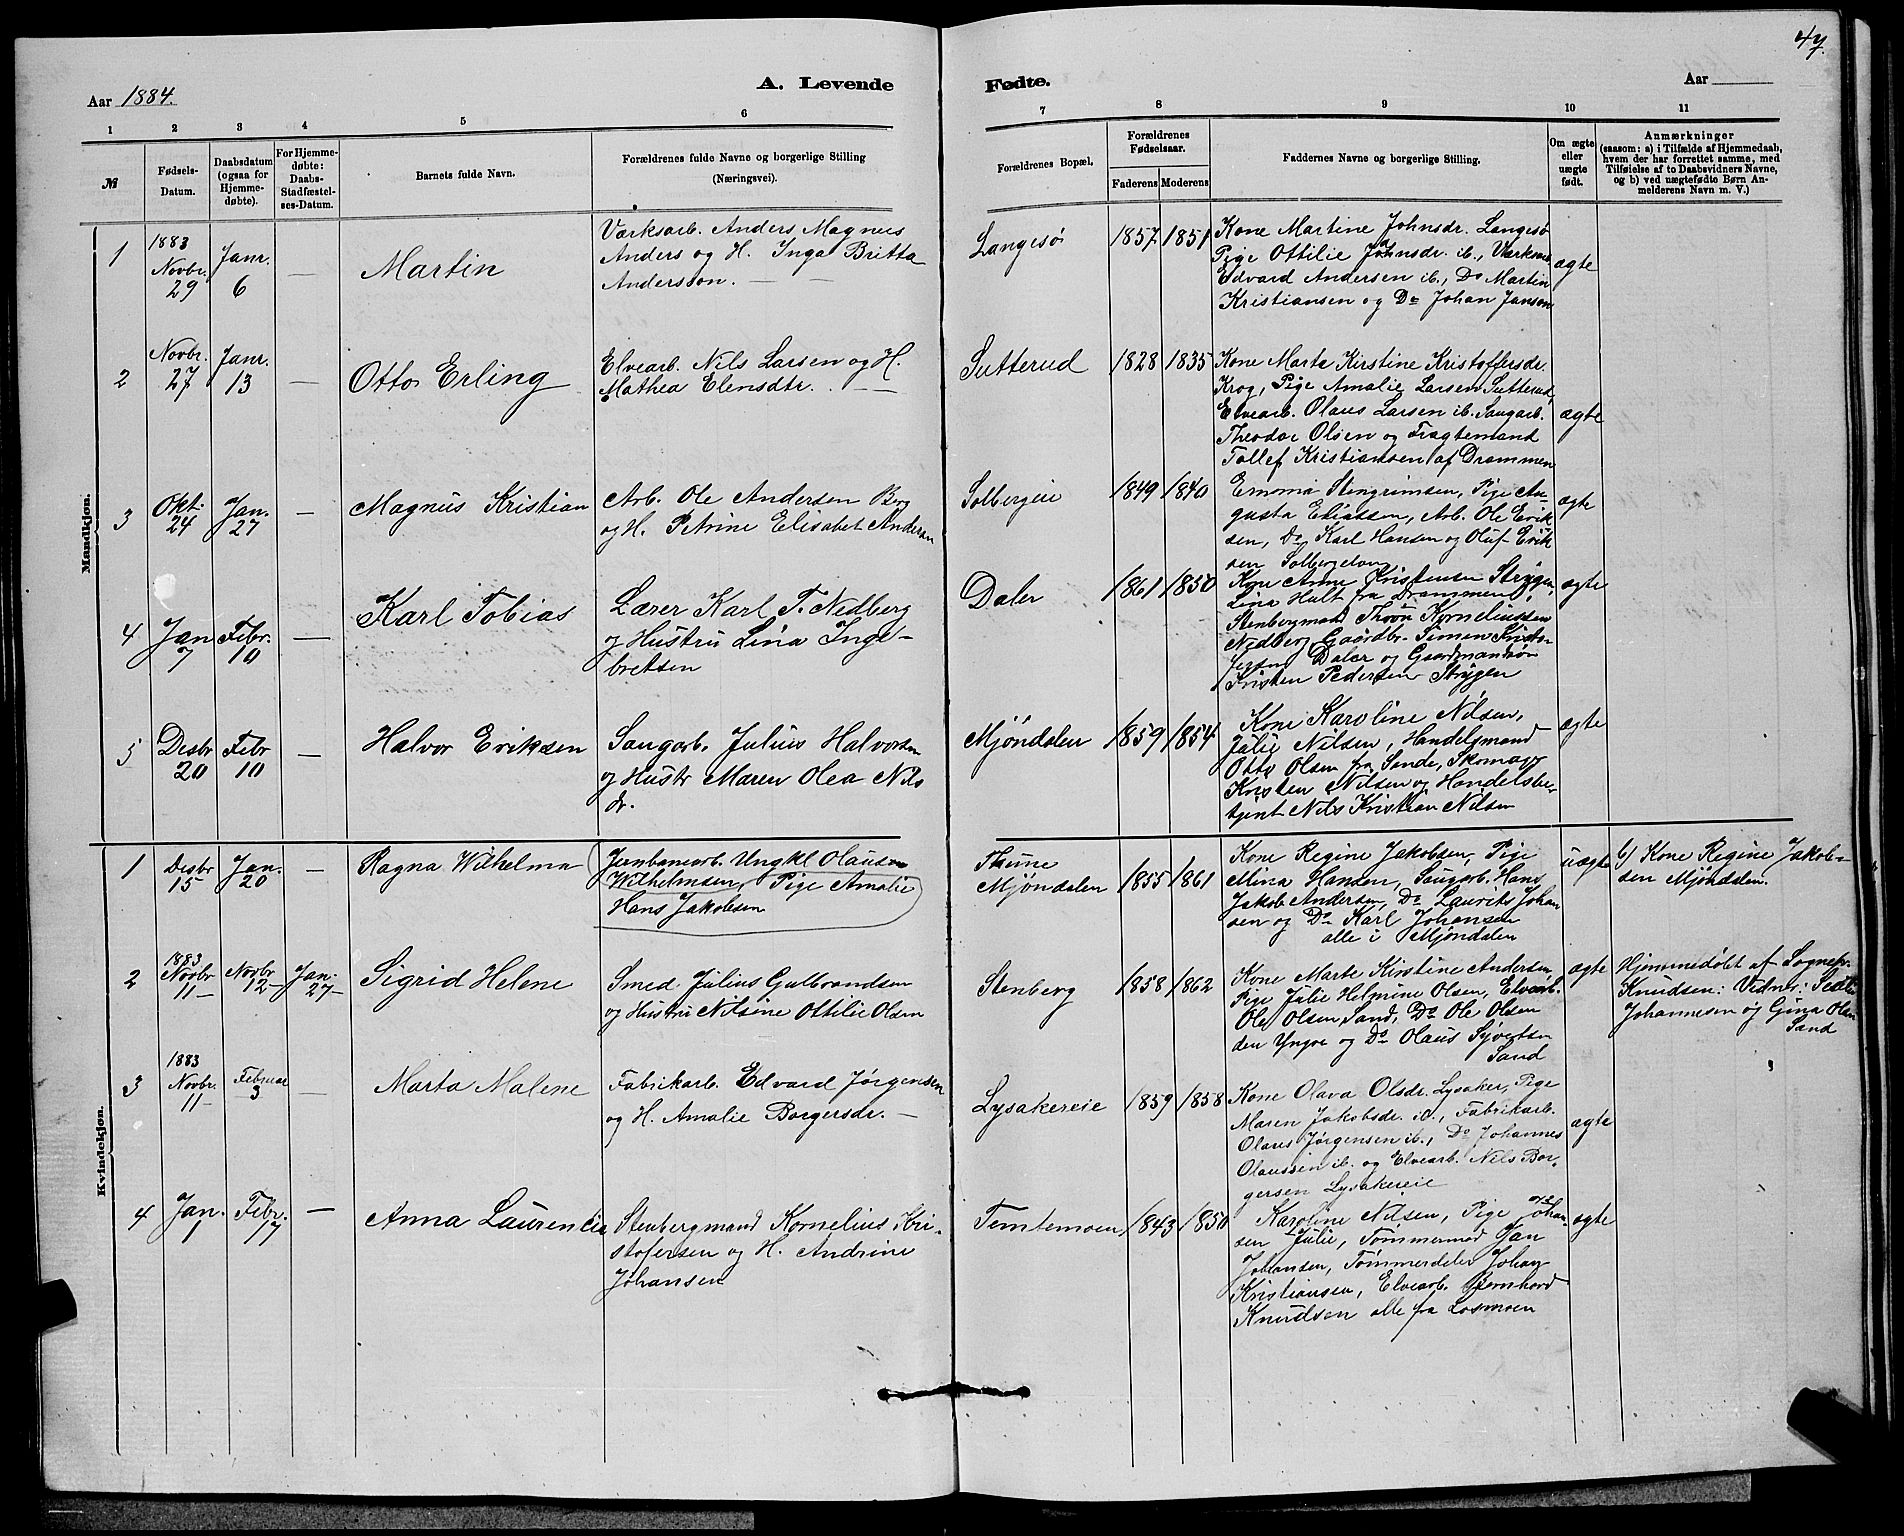 47.
Aar 1884.
A. Levende
Fødte.
Aar
1 2 3 4 5 6 7 8 9 10 11
№
Fødsels-
Datum.
Daabsdatum
(ogsaa for
Hjemme-
døbte).
For Hjemme-
døbte:
Daabs-
Stadfæstel-
ses-Datum.
Barnets fulde Navn.
Forældrenes fulde Navne og borgerlige Stilling
(Næringsvei).
Forældrenes Bopæl.
Forældrenes
Fødselsaar.
Faderens
Moderens
Faddernes Navne og borgerlige Stilling.
Om ægte
eller
uægte
født.
Anmærkninger
(saasom: a) i Tilfælde af Hjemmedaab,
hvem der har forrettet samme, med
Tilføielse af to Daabsvidners Navne,
og b) ved uægtefødte Børn An-
melderens Navn m. V.)
Mandkjøn.
1
1883
Novbr.
29
Janr.
6
—
Martin
Værksarb. Anders Magnus
Anders og H. Inga Britta
Andersson. — —
Langesø
1857
1851
Kone Martine Johnsdr. Langesø
Pige Ottilie Johnsdr. ib., Værksarb
Edvard Andersen ib., Do Martin
Kristiansen og Do Johan Janson
ægte
2
Novbr.
27
Janr.
13
—
Otto Erling
Elvearb. Nils Larsen og H.
Mathea Elensdtr. — —
Sutterud
1828
1835
Kone Marte Kirstine Kristoffersdr.
Krog, Pige Amalie Larsen Sutterud,
Elvearb. Olaus Larsen ib. Saugarb.
Theodor Olsen og Fragtemand
Tollef Kristiansen af Drammen
ægte
3
Okt.
24
Jan.
27
—
Magnus Kristian
Arb. Ole Andersen Berg
og H. Petrine Elisabet Andersen
Solbergeie
1849
1840
Emma Stengrimsen, Pige Au-
gusta Eliassen, Arb. Ole Erik
sen, Do Karl Hansen og Oluf Erik
sen Solbergelven
ægte
4
Jan
7
Febr.
10
—
Karl Tobias
Lærer Karl T. Nedberg
og Hustru Lina Inge-
bretsen
Daler
1861
1850
Kone Anne Kristensen Strygen,
Lina Hult fra Drammen,
Stenbergmand Thron Korneliussen
Nedberg, Gaardbr. Simen
Daler og Gaardmandssøn
Kristen Pedersen Strygen
ægte
5
Desbr
20
Febr
10
—
Halvor Eriksen
Saugarb. Julius Halvorsen
og Hustr Maren Olea Nils
dr.
Mjøndalen
1859
1854
Kone Karoline Nilsen,
Julie Nilsen, Handelsmand
Otto Olsen fra Sende, Skomager
Kristen Nilsen og Handelsbe-
tjent Nils Kristian Nilsen
ægte
Kvindekjøn.
1
Desbr
15
Jan.
20
—
Ragna Wilhelma
Jernbanearb. Ungkl Olaus
Wilhelmsen, Pige Amalie
Hans Jakobsen
Thune
Mjøndalen
1855
1861
Kone Regine Jakobsen, Pige
Mina Hansen, Saugarb. Hans
Jakob Andersen, Do Laurits Johan
sen og Do Karl Johansen
alle i Mjøndalen
uægte
b) Kone Regine Jakob-
sen Mjøndalen.
2
1883
Novbr
11
Novbr
12
Jan.
27
Sigrid Helene
Smed Julius Gulbrandsen
og Hustru Nilsine Ottilie Olsen
Stenberg
1858
1862
Kone Marte Kirstine Andersen
Pige Julie Helmine Olsen, Elvearb.
Ole Olsen Sand, Do Ole Olsen
den Yngre og Do Olaus Syvertsen
Sand
ægte
Hjemmedøbt af Sognepr.
Knudsen: Vidner:
Johannesen og Gina Olsen
Sand
3
1883
Novbr.
11
Februar
3
—
Marta Malene
Fabrikarb. Edvard Jørgensen
og H. Amalie Borgersdr. —
Lysakereie
1859
1858
Kone Olava Olsdr. Lysaker, Pige
Maren Jakobsdr. ib., Fabrikarb.
Olaus Jørgensen ib., Do Johannes
Olaussen ib. og Elvearb. Nils Bor-
gersen Lysakereie
ægte
4
Jan.
1
Febr.
17
—
Anna Laurencia
Stenbergmand Kornelius Kri-
stofersen og H. Andrine
Johansen
Temtemoen
1843
1850
Karoline Nilsen, Pige Johan-
sen Julie, Tømmermand Jan
Johansen, Tømmerdeler Johan
Kristiansen, Elvearb. Bernhard
Knudsen alle fra Losmoen
ægte